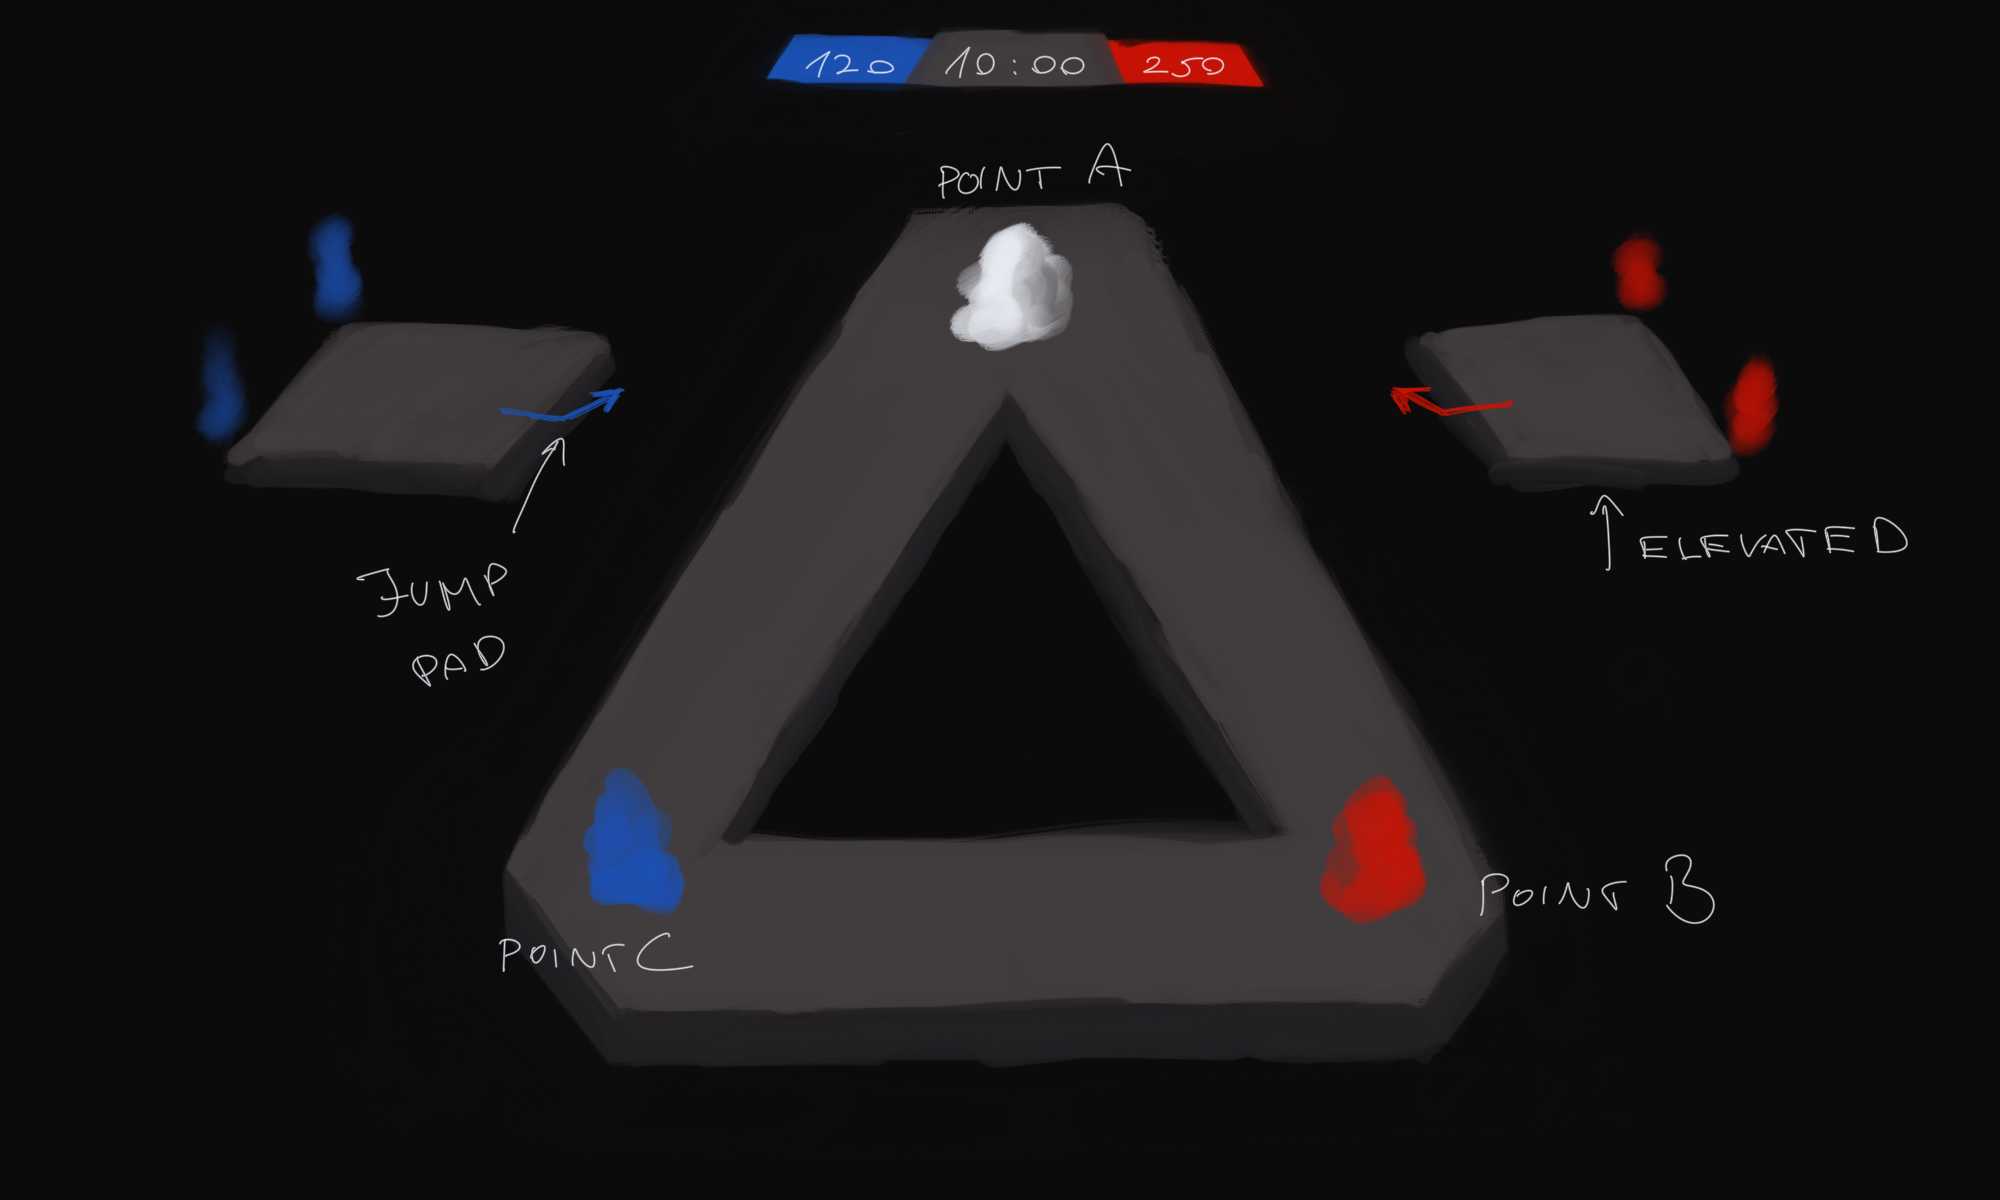 120 10:00 250
POINT A
JUMP
PAD
ELEVATED
POINT B
POINT C